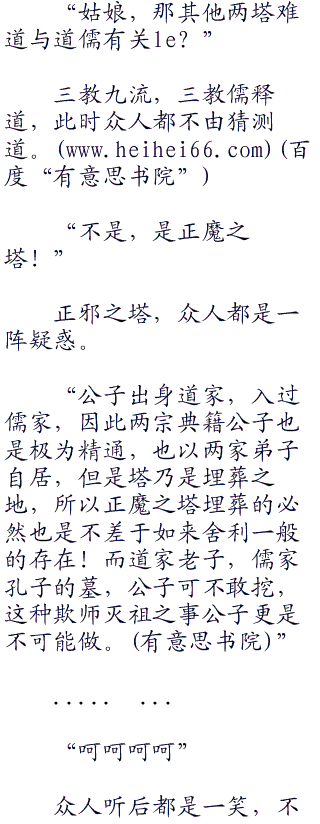 “姑娘，那其他两塔难
道与道儒有关le？”
三教九流，三教儒释
道，此时众人都不由猜测
道。(www.heihei66.com)(百
度“有意思书院”)
“不是，是正魔之
塔！”
正邪之塔，众人都是一
阵疑惑。
“公子出身道家，入过
儒家，因此两宗典籍公子也
是极为精通，也以两家弟子
自居，但是塔乃是埋葬之
地，所以正魔之塔埋葬的必
然也是不差于如来舍利一般
的存在！而道家老子，儒家
孔子的墓，公子可不敢挖，
这种欺师灭祖之事公子更是
不可能做。(有意思书院)”
..... ...
“呵呵呵呵”
众人听后都是一笑，不